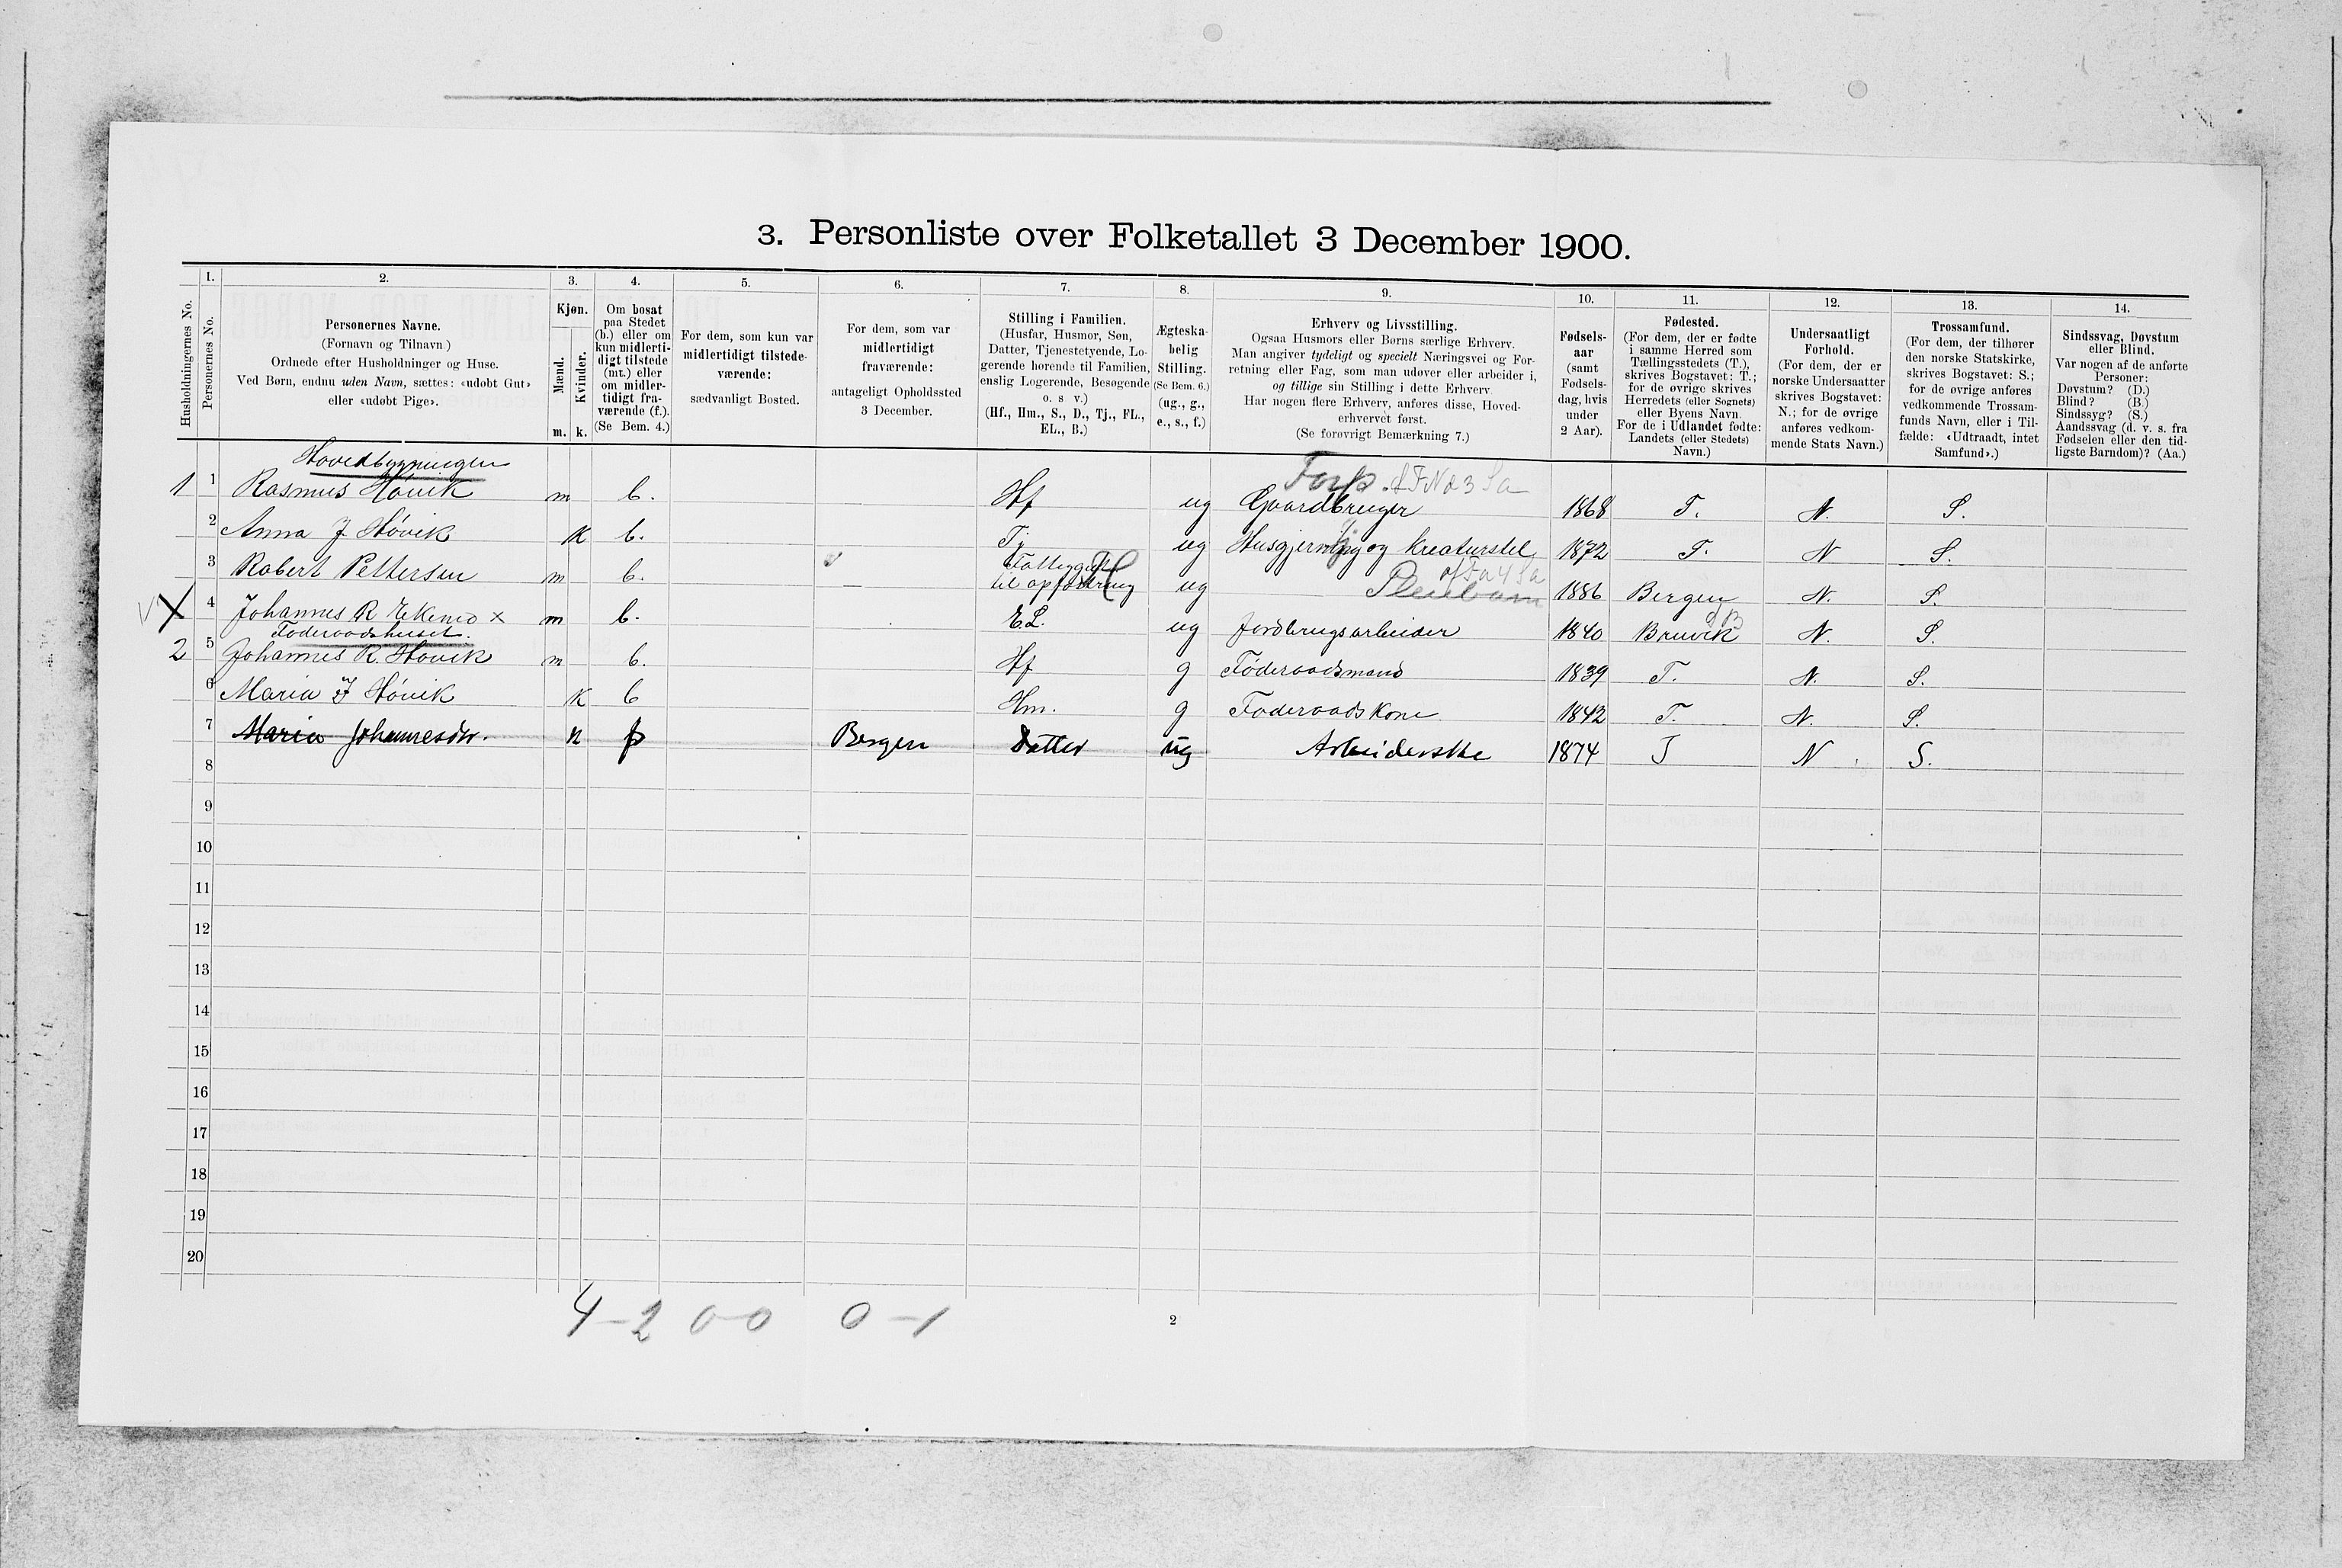 3. Personliste over Folketallet 3 December 1900.
Husholdningernes No.
1.
Personernes No.
2.
Personernes Navne.
(Fornavn og Tilnavn.)
Ordnede efter Husholdninger og Huse.
Ved Børn, endnu uden Navn, sættes: «udøbt Gut»
eller «udøbt Pige».
3.
Kjøn.
Mænd.
Kvinder.
m. k.
4.
Om bosat
paa Stedet
(b.) eller om
kun midlerti-
digt tilstede
(mt.) eller
om midler-
tidigt fra-
værende (f.).
(Se Bem. 4.)
5.
For dem, som kun var
midlertidigt tilstede-
værende:
sædvanligt Bosted.
6.
For dem, som var
midlertidigt
fraværende:
antageligt Opholdssted
3 December.
7.
Stilling i Familien.
(Husfar, Husmor, Søn,
Datter, Tjenestetyende, Lo-
gerende hørende til Familien,
enslig Logerende, Besøgende
o. s v.)
(Hf., Hm., S., D., Tj., FL.,
EL., B.)
8.
Ægteska-
belig
Stilling.
(Se Bem. 6.)
(ug., g.,
e., s., f.)
9.
Erhverv og Livsstilling.
Ogsaa Husmors eller Børns særlige Erhverv.
Man angiver tydeligt og specielt Næringsvei og For-
retning eller Fag, som man udøver eller arbeider i,
og tillige sin Stilling i dette Erhverv.
Har nogen flere Erhverv, anføres disse, Hoved-
erhvervet først.
(Se forøvrigt Bemærkning 7.)
10.
Fødsels-
aar
(samt
Fødsels-
dag, hvis
under
2 Aar).
11.
Fødested.
(For dem, der er fødte
i samme Herred som
Tællingsstedets (T.),
skrives Bogstavet: T.;
for de øvrige skrives
Herredets (eller Sognets)
eller Byens Navn.
For de i Udlandet fødte:
Landets (eller Stedets)
Navn.)
12.
Undersaatligt
Forhold.
(For dem, der er
norske Undersaatter
skrives Bogstavet:
N.; for de øvrige
anføres vedkom-
mende Stats Navn.)
13.
Trossamfund.
(For dem, der tilhører
den norske Statskirke,
skrives Bogstavet: S.;
for de øvrige anføres
vedkommende Trossam-
funds Navn, eller i Til-
fælde: «Udtraadt, intet
Samfund».)
14.
Sindssvag, Døvstum
eller Blind.
Var nogen af de anførte
Personer:
Døvstum? (D.)
Blind? (B.)
Sindssyg? (S.)
Aandssvag (d. v. s. fra
Fødselen eller den tid-
ligste Barndom)? (Aa.)
Hovedbygningen
1 1 Rasmus Hóvik m b. Hf ug Gaardbruger 1868 T. N. S.
2 Anna J Hóvik K b. Tj ug Husgjerning og Kreaturstel 1872 T. N S.
3 Robert Pettersen m b. Fattiggut til opfostring ug Pleiebarn 1886 Bergen N. S.
X 4 Johannes R x m b. EL. ug Jordbrugsarbeider 1840 Bruvik N. S.
Føderaadshuset.
2 5 Johannes R. Hovik m b. Hf g Føderaadsmand 1839 T. N. S.
6 Maria J Hóvik K b Hm. g Foderaadskone 1842 T. N. S.
7 Maria Johannesdtr. K f Bergen Datter ug Arbeiderske 1874 T N S.
8
9
10
11
12
13
14
15
16
17
18
19
20
4 - 2 0-0 0-1
2